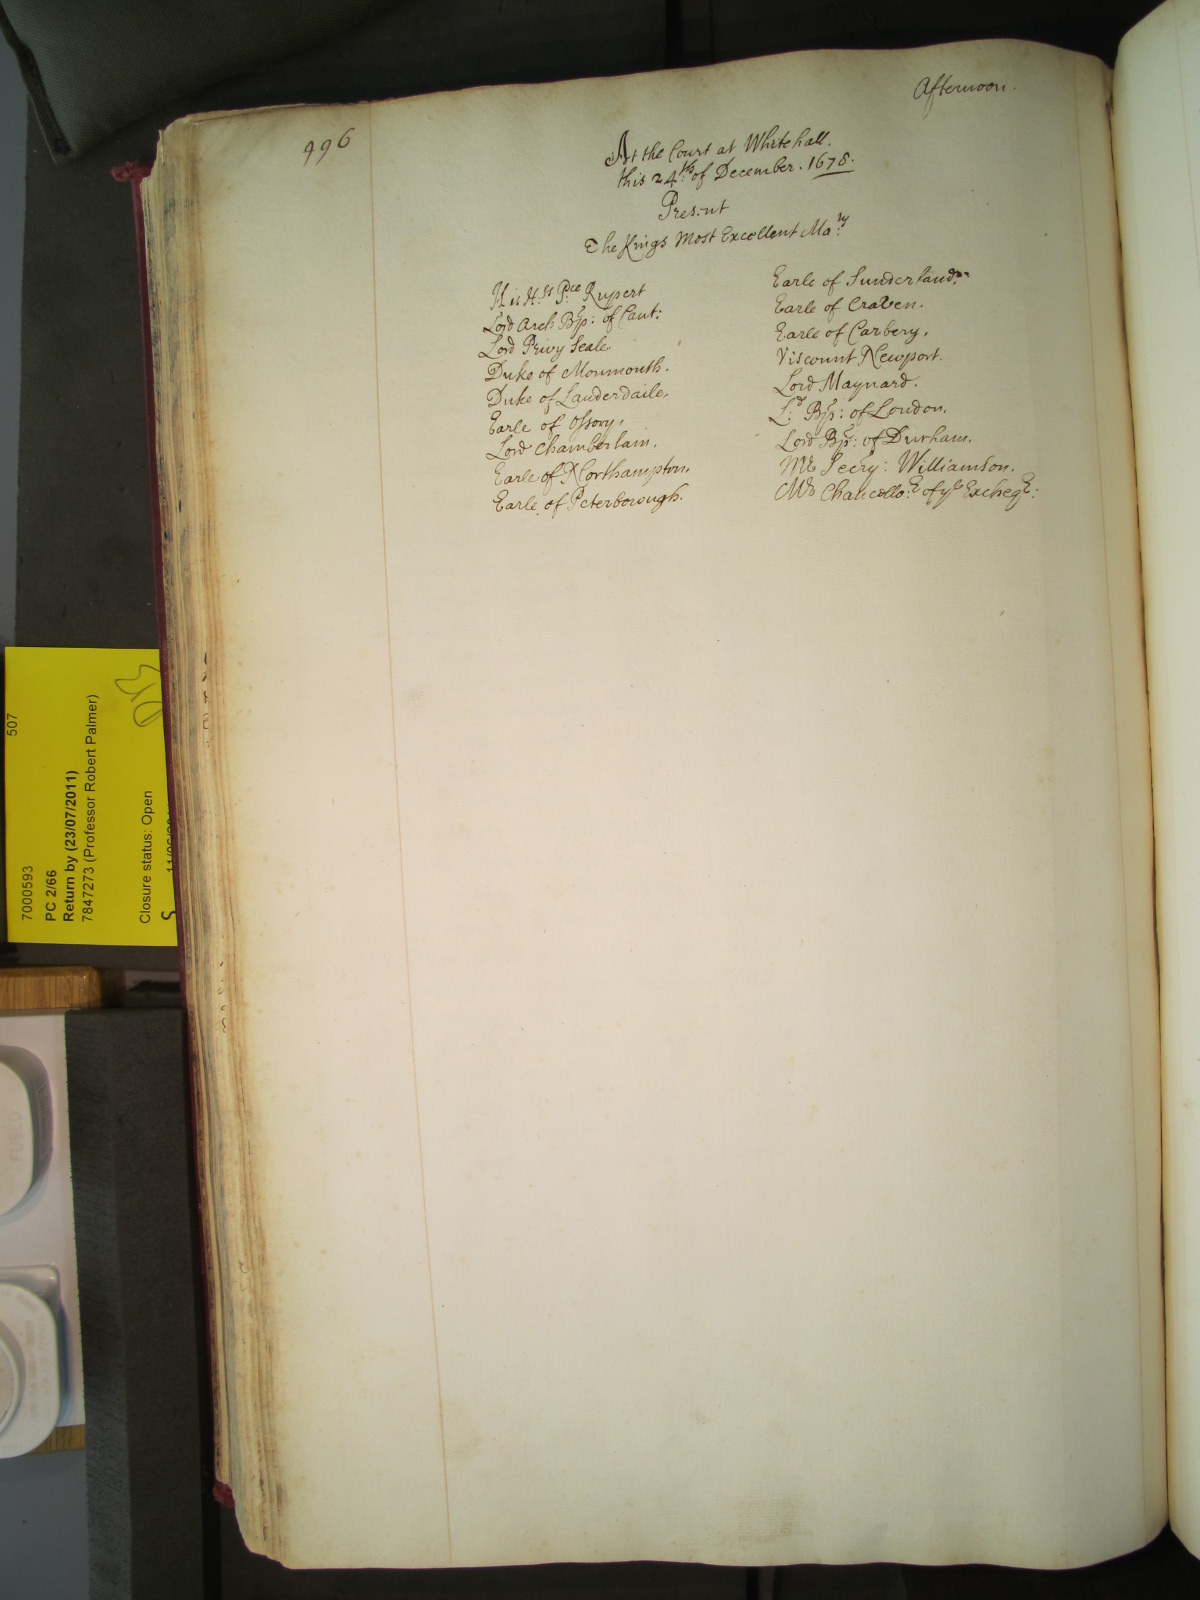 496
Afternoon.
At the Court at Whitehall.
this 24th of December. 1678.
Present
The Kings Most Excellent Ma:ty
His H:ss P:ce Rupert
Lord Arch Bp: of Cant:
Lord Privy Seale.
Duke of Monmouth.
Duke of Lauderdaile.
Earle of Ossory.
Lord Chamberlain.
Earle of Northampton.
Earle of Peterborough.
Earle of Sunderland.
Earle of Craven.
Earle of Carbery.
Viscount Newport.
Lord Maynard.
L:d Bp: of London.
Lord Bp: of Durham.
Mr Secry: Williamson.
Mr Chancello:r of ye Excheqr:
507
7000593
PC 2/66
Return by (23/07/2011)
7847273 (Professor Robert Palmer)
Closure status: Open